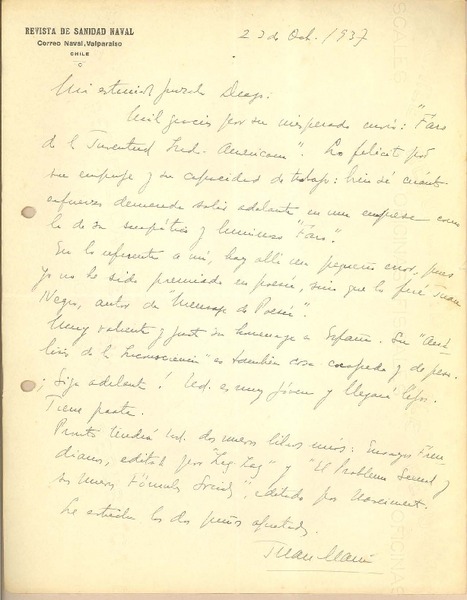 REVISTA DE SANIDAD NAVAL
Correo Naval, Valparaiso
CHILE
23 de Oct. 1937
Mi estimado
Mil gracias por su inesperado envío: "Faro
de la Juventud Ind-Americana". Lo felicito por
su empuje y su capacidad de trabajo: bien sé cuánto
esfuerzo demanda salir adelante en una empresa como
la de su simpático y luminoso "Faro".
En lo referente a mí, hay allí un pequeño error, pues
yo no he sido premiado en poesía, sino que lo fué Juan
Negro, autor de "Mensaje de Poesía".
Muy valiente y justo su homenaje a España. Su "Aná-
lisis de la Inconsciencia" es también cosa
¡Siga adelante! Ud. es muy jóven y llegará lejos.
Tiene pasta.
Pronto tendrá Ud. dos nuevos libros míos: Ensayos Freu-
dianos, editado por "Zig Zag" y "El Problema Sexual y
sus nuevas fórmulas Sociales", editado por Nascimento.
Le estrecha los dos puños apretados.
Juan Marín